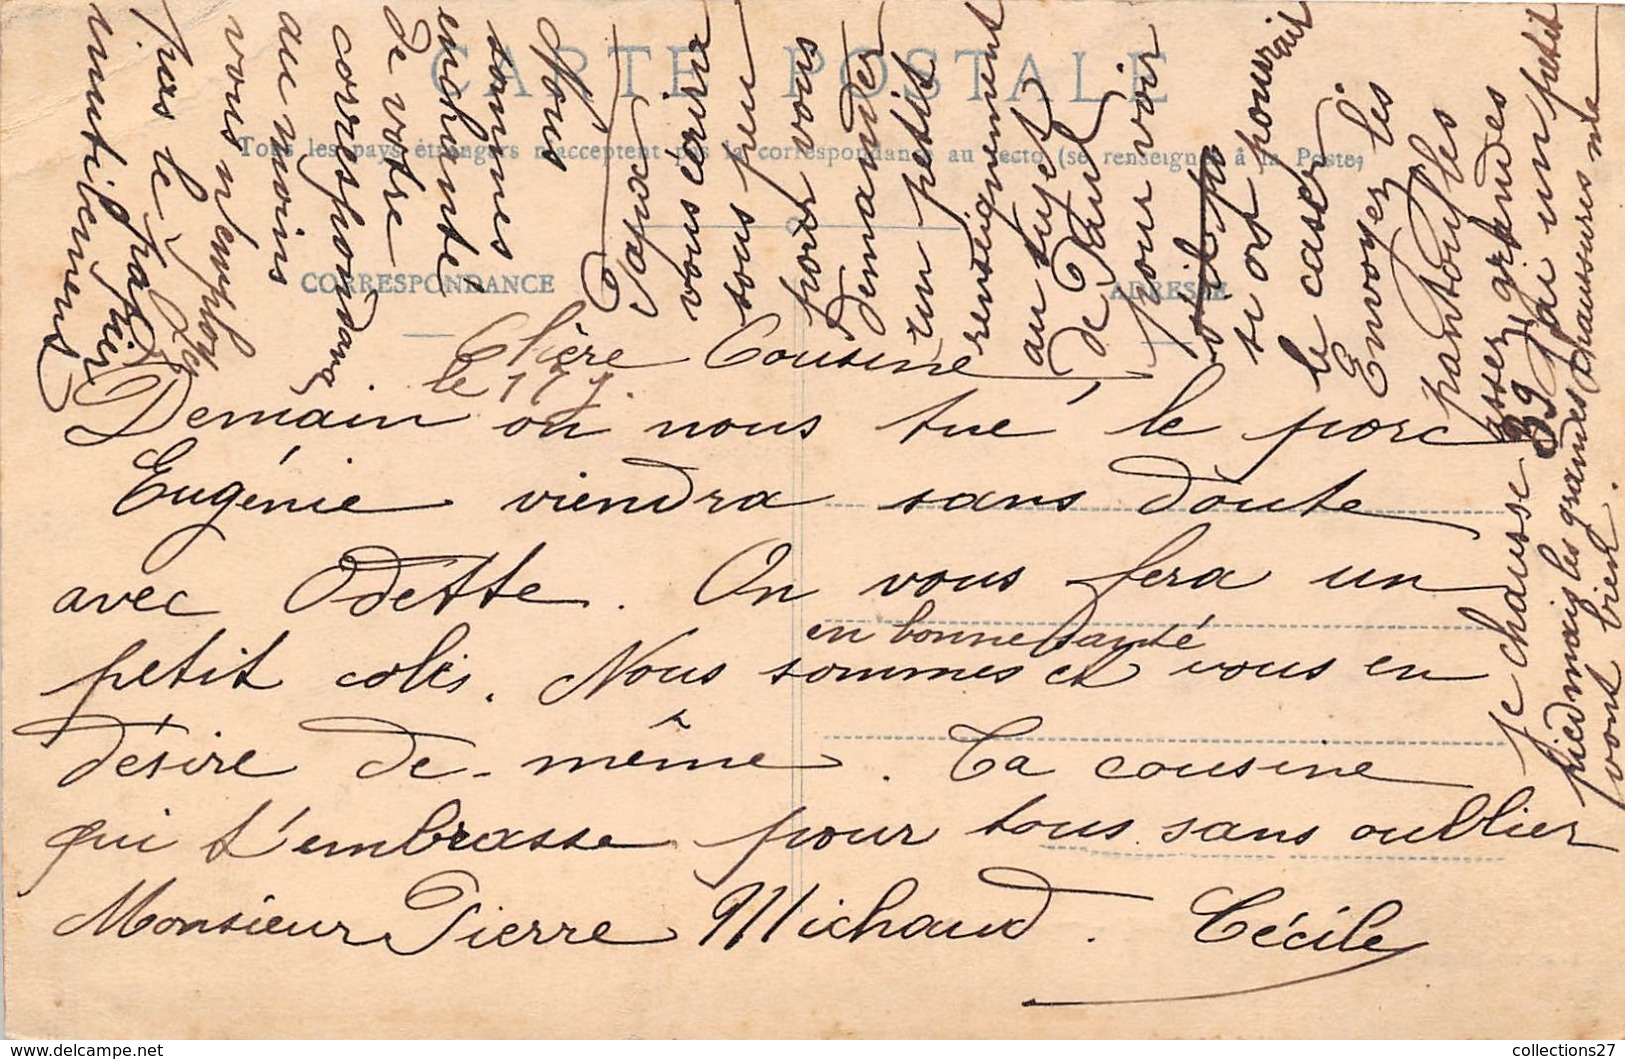 CARTE POSTALE
Tous les pays étrangers n'acceptent pas la correspondance au recto (se renseigner à la Poste)
CORRESPONDANCE
ADRESSE
Chère Cousine
le 17 j.
Demain on nous tue le porc
Eugénie viendra sans doute
avec Odette. On vous fera un
petit colis. Nous sommes en bonne santé et vous en
désire de même. Ta cousine
qui t'embrasse pour tous sans oublier
Monsieur Pierre Michaud. Cécile
Nous
sommes
enchanté
de votre
correspondance
au moins
vous n'employez
pas le papier
inutilement
Papa
vous écrira
sous peu
pour vous
demander
un petit
renseignement
au sujet
de Paul
pour voir
si on pourrait
le caser
Envoyez les
pantoufles
assez grandes
je chausse 39 J'ai un petit
pied mais les grandes chaussures me
vont bien.
collections27